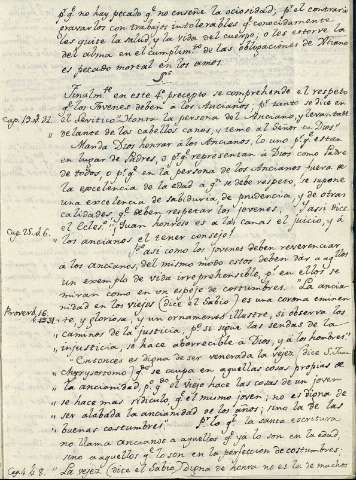 pᵉ qᵉ no hay pecado qᵉ no enseñe la ociosidad; pʳ el contrario
gravarlos con trabajos intolerables qᵉ conocidamente
les quite la salud y la vida del cuerpo; o les estorve la
del alma en el cumplimᵗᵒ de las obligaciones de Xtiano
es pecado mortal en los amos.
Finalmᵗᵉ en este 4º precepto se comprehende el respeto
qᵉ los Jovenes deben a los Ancianos, pʳ tanto se dice en
Cap. 19. v. 32. el Levitico: Honra la persona del Anciano, y levantate
delante de los cabellos canos, y teme al Señor tu Dios.
Manda Dios honrar a los Ancianos, lo uno pʳ qᵉ estan
en lugar de Padres, o pʳ qᵉ representan a Dios como Padre
de todos, o pʳ qᵉ en la persona de los Ancianos fuera de
la excelencia de la edad a qᵉ se debe respeto, se supone
una excelencia de sabiduria, de prudencia, y de otras
calidades, qᵉ deben respetar los jovenes. Y asi dice
Cap. 25. v. 6. el Ecles. Quan honroso es a las canas el juicio, y á
los ancianos el tener consejo!
Y asi como los jovenes deben reverenciar
a los ancianos, del mismo modo estos deben dar a aqllos
un exemplo de vida irreprehensible, pʳ qᵉ en ellos se
miran como en un espejo de costumbres. La ancia-
Proverb. 16. 31. nidad en los viejos (dice el Sabio) es una corona eminen-
te, y gloriosa, y un ornamento illustre, si observa los
caminos de la justicia, pº si sigue las sendas de la
injusticia, se hace aborrecible a Dios, y a los hombres.
Entonces es digna de ser venerada la vejez (dice S. Juan
Chrysostomo) qᵈᵒ se ocupa en aquellas cosas propias de
la ancianidad, pº qᵈᵒ el viejo hace las cosas de un joven
se hace mas ridiculo qᵉ el mismo joven; no es digna de
ser alabada la ancianidad de los años; sino la de las
buenas costumbres. pʳ lo qᵉ la santa escritura
no llama ancianos a aquellos qᵉ ya lo son en la edad,
sino a aquellos qᵉ lo son en la perfeccion de costumbres.
Cap. 4. v. 8. La vejez (dice el Sabio) digna de honra no es la de muchos